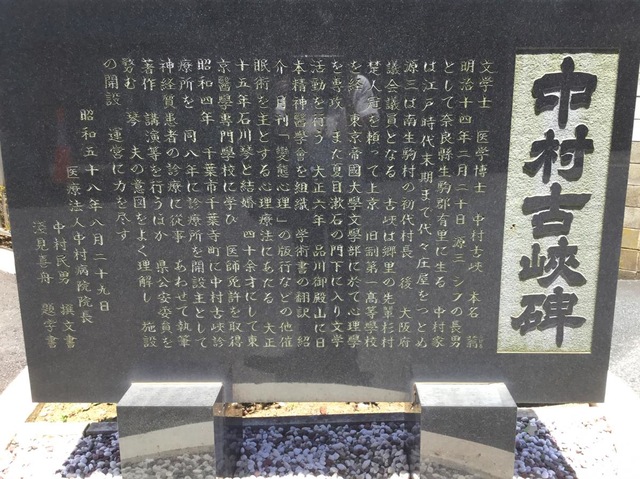 中村古峡碑
文学士 医学博士 中村古峡 本名 蓊
明治十四年二月二十日 源三 シフの長男
として奈良縣生駒郡有里に生る 中村家
は江戸時代末期まで代々庄屋をつとめ
源三は南生駒村の初代村長 後 大阪府
議会議員となる 古峡は郷里の先輩杉村
楚人冠を頼って上京 旧制第一高等學校
を経 東京帝國大學文學部に於て心理學
を専攻 また夏目漱石の門下に入り文学
活動を行う 大正六年 品川御殿山に日
本精神醫學會を組織 学術書の翻訳 紹
介 月刊「變態心理」の版行などの他催
眠術を主とする心理療法にあたる 大正
十五年石川琴と結婚 四十余才にして東
京醫學専門學校に学び 医師免許を取得
昭和四年 千葉市千葉寺町に中村古峡診
療所を 同八年に診療所を開設主として
神経質患者の診療に従事 あわせて執筆
著作 講演等を行うほか 県公安委員を
務む 琴 夫の意図をよく理解し 施設
の開設 運営に力を尽す
昭和五十八年八月二十九日
医療法人中村病院院長
中村民男 撰文書
浅見喜舟 題字書